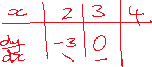 x 2 3 4
dy/dx -3 0
\ —